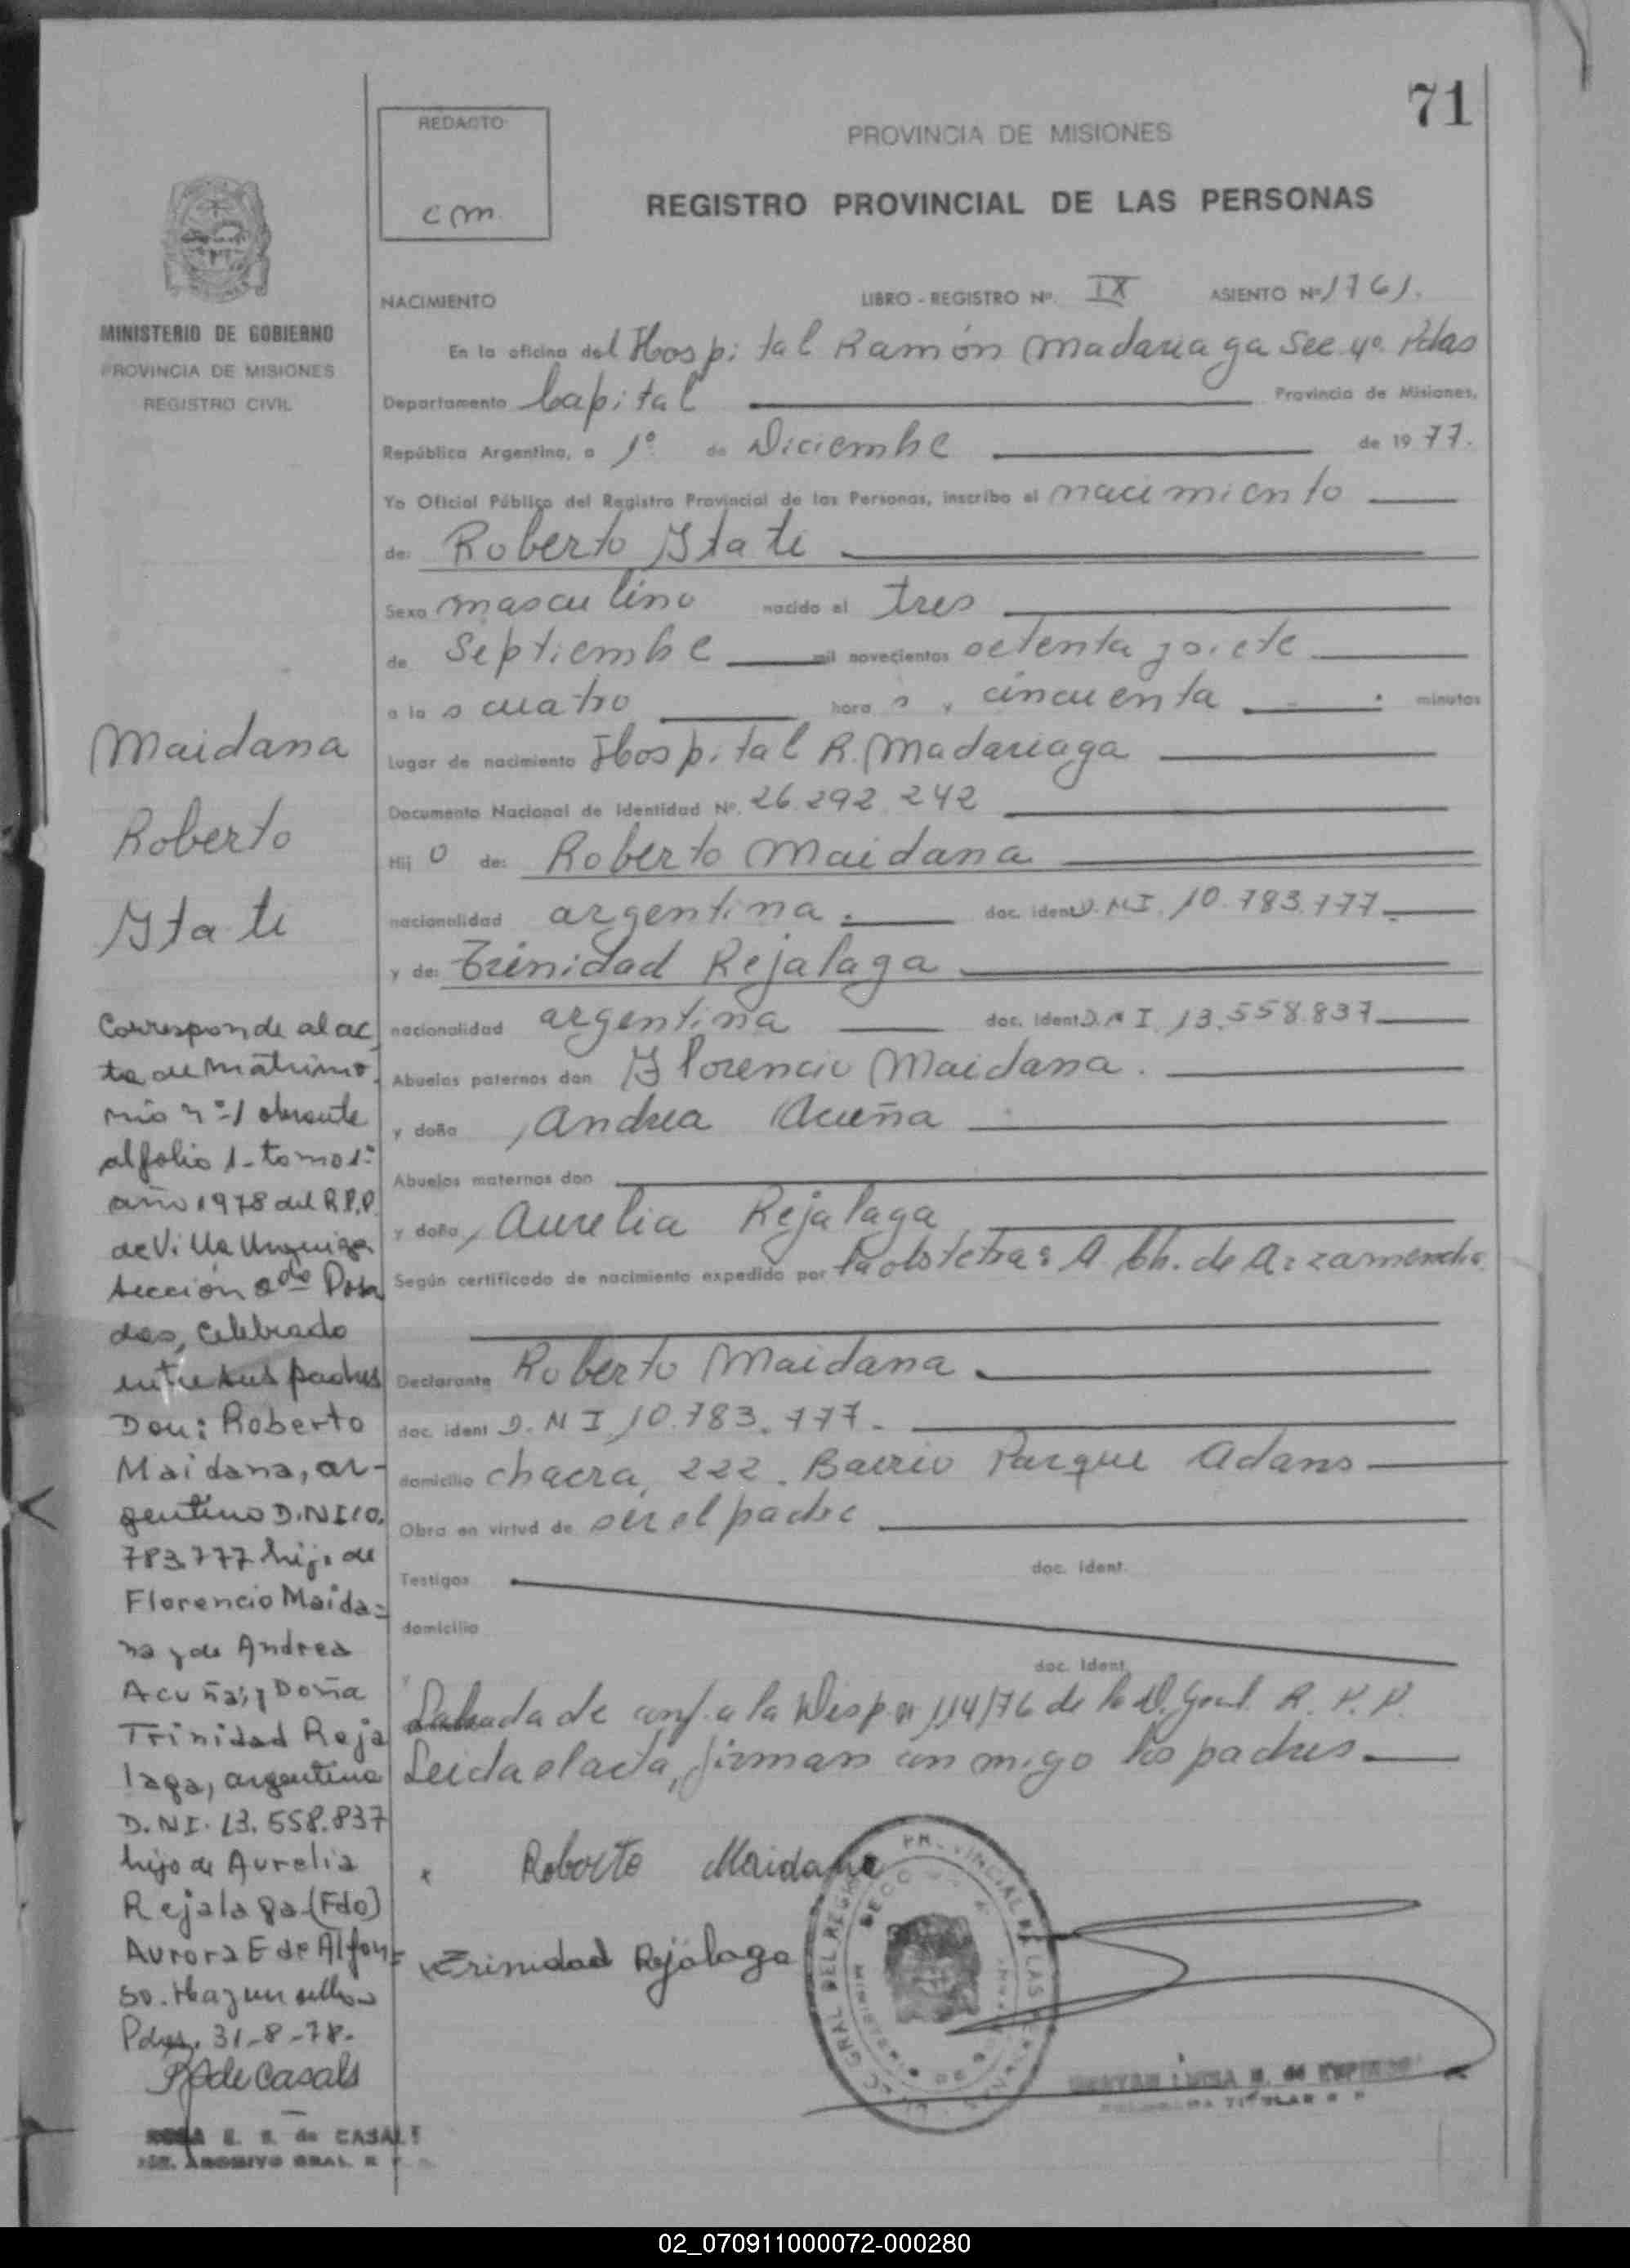 71
REDACTO
cm.
PROVINCIA DE MISIONES
REGISTRO PROVINCIAL DE LAS PERSONAS
MINISTERIO DE GOBIERNO
PROVINCIA DE MISIONES
REGISTRO CIVIL
NACIMIENTO LIBRO - REGISTRO Nº. IX ASIENTO Nº 1761.
En la oficina del Hospital Ramón Madariaga Sec. 4º. Pdas
Departamento Capital Provincia de Misiones,
República Argentina, a 1º de Diciembre de 1977.
Yo Oficial Público del Registro Provincial de las Personas, inscribo el nacimiento
de: Roberto Itati
Sexo masculino nacido el tres
de Septiembre mil novecientos setenta y siete
a las cuatro horas y cincuenta minutos
Lugar de nacimiento Hospital R. Madariaga
Documento Nacional de Identidad Nº. 26.292.242
Hijo de: Roberto Maidana
nacionalidad argentina. doc. ident D.N.I. 10.783.777.
y de: Trinidad Rejalaga
nacionalidad argentina doc. ident. D.N.I. 13.558.837
Abuelos paternos don Florencio Maidana.
y doña Andrea Acuña
Abuelos maternos don
y doña Aurelia Rejalaga
Según certificado de nacimiento expedido por la obstetra: A. Ch. de Arzamendia.
Declarante Roberto Maidana.
doc. ident D.N.I. 10.783.777.
domicilio chacra 222. Barrio Parque Adans
Obra en virtud de ser el padre
Testigos doc. ident.
domicilio
y doc. ident.
Labrada de conf. a la Disp. nº 114/76 de la D. Gral. R. P. P.
Leida el acta, firman conmigo los padres.
Roberto Maidana
Trinidad Rejalaga
Maidana
Roberto
Itati
Corresponde al ac
ta de Matrimo
nio nº 1 obrante
al folio 1 - tomo 1º
año 1978 del R.P.P.
de Villa Urquiza
sección 2da Posa
das, celebrado
entre sus padres
Don: Roberto
Maidana, ar-
gentino D.N.I 10.
783.777 hijo de
Florencio Maida=
na y de Andrea
Acuña; y Doña
Trinidad Reja
laga, argentina
D.N.I. 13.558.837
hija de Aurelia
Rejalaga-(Fdo)
Aurora E de Alfon=
so. Hay un sello
Pdas. 31-8-78.
R de Casals
ROSA E. R. de CASALS
ARCHIVO GRAL. R
02_070911000072-000280